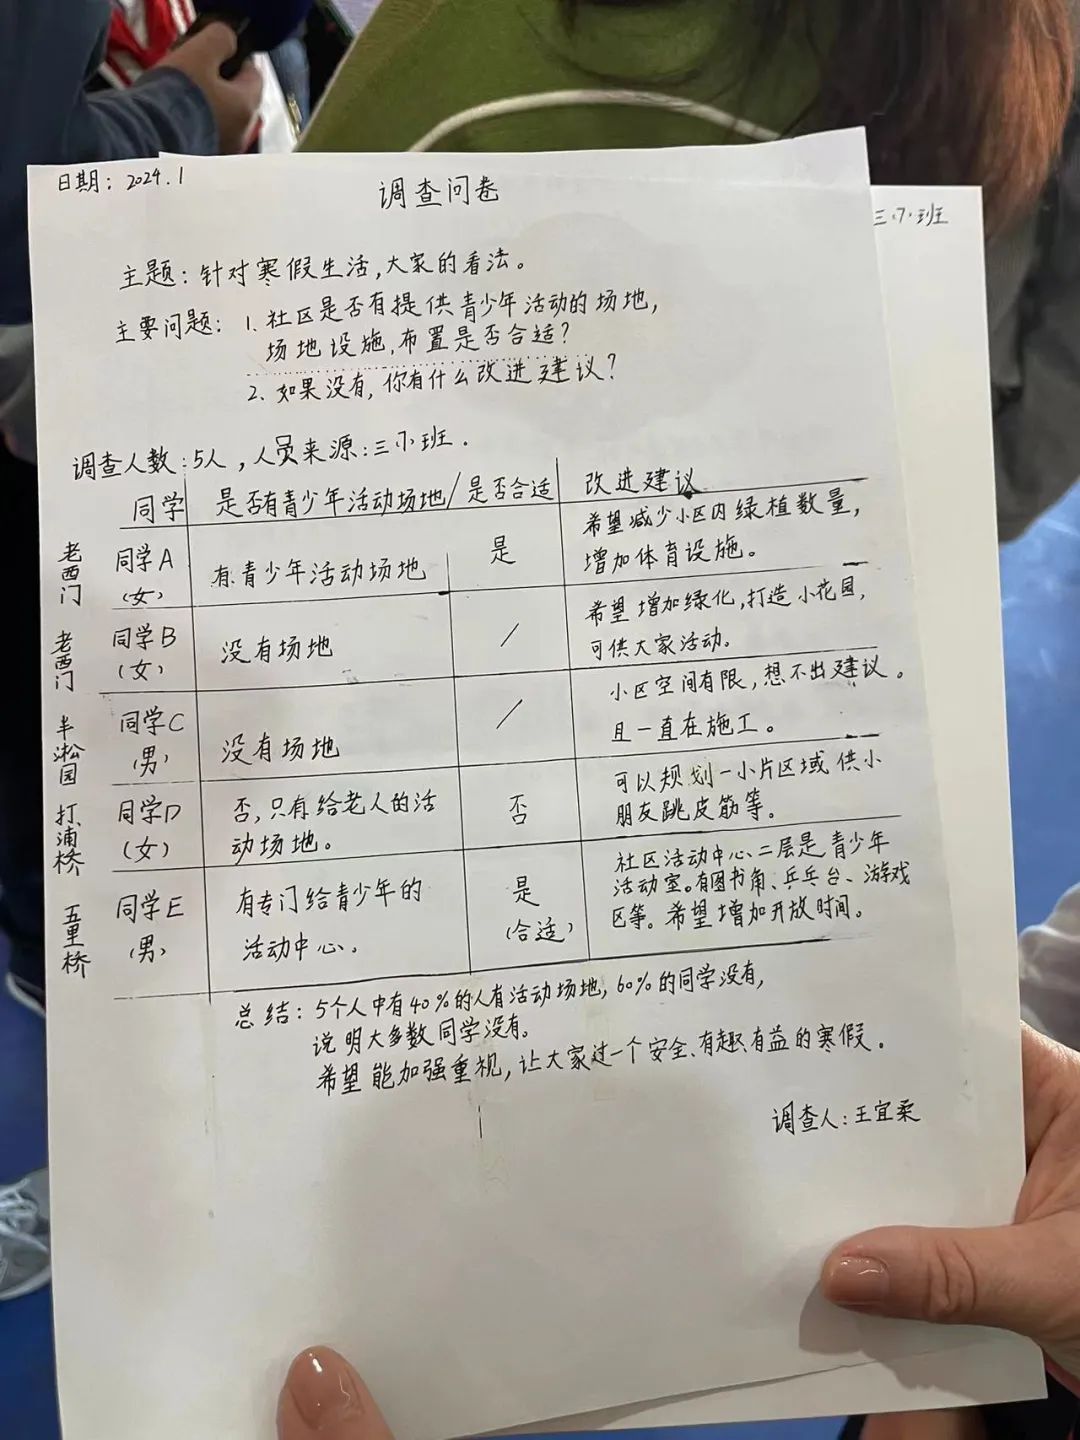 日期：2024.1
调查问卷
三(7)班
主题：针对寒假生活，大家的看法。
主要问题：1. 社区是否有提供青少年活动的场地，
场地设施、布置是否合适？
2. 如果没有，你有什么改进建议？
调查人数：5人，人员来源：三(7)班.
同学 是否有青少年活动场地/是否合适 改进建议
老西门
同学A
(女)
有青少年活动场地
是
希望减少小区内绿植数量，
增加体育设施。
老西门
同学B
(女)
没有场地
/
希望增加绿化，打造小花园，
可供大家活动。
半淞园
同学C
(男)
没有场地
/
小区空间有限，想不出建议。
且一直在施工。
打浦桥
同学D
(女)
否，只有给老人的活
动场地。
否
可以规划一小片区域供小
朋友跳皮筋等。
五里桥
同学E
(男)
有专门给青少年的
活动中心。
是
(合适)
社区活动中心二层是青少年
活动室。有图书角、乒乓台、游戏
区等。希望增加开放时间。
总结：5个人中有40%的人有活动场地，60%的同学没有，
说明大多数同学没有。
希望能加强重视，让大家过一个安全、有趣、有益的寒假。
调查人：王宜柔